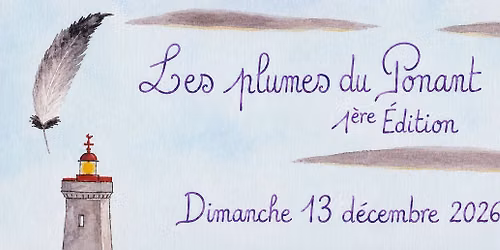 Les plumes du Ponant
1ère Édition
Dimanche 13 décembre 2026